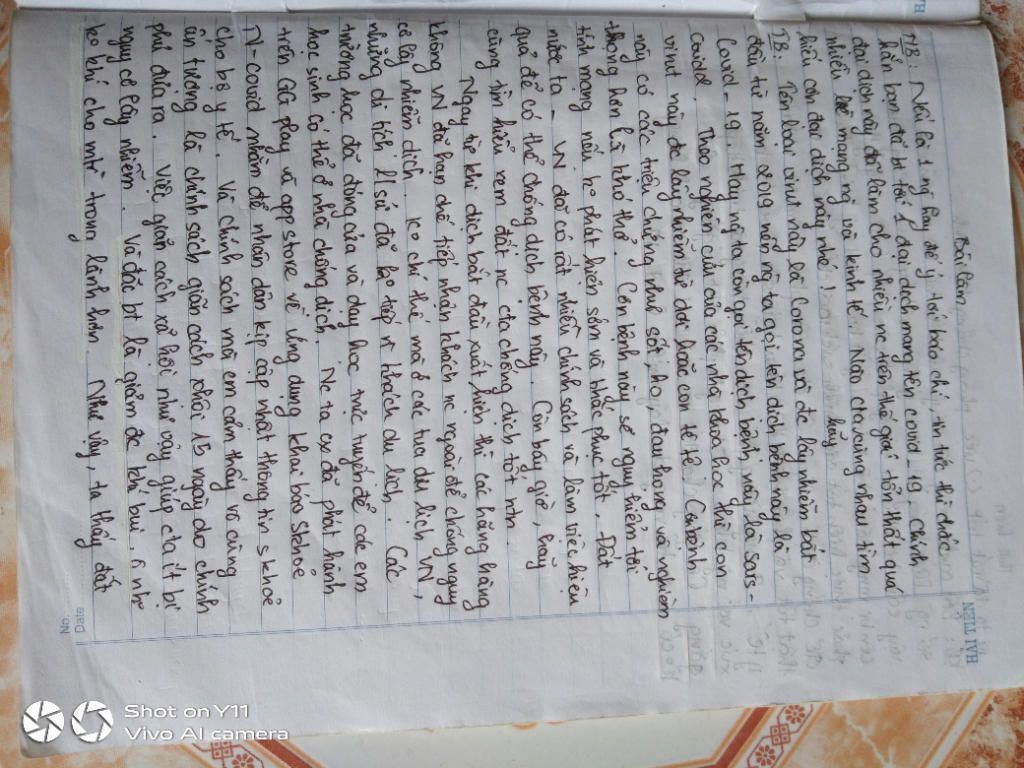 HẢI TIẾN
Date
No
Bài làm
MB: Nếu là 1 ng hay để ý tới báo chí, tin tức thì chắc
hẳn bạn đã bt tới 1 đại dịch mang tên covid-19. Chính
đại dịch này đã làm cho nhiều nc trên thế giới tổn thất quá
nhiều về mạng ng và kinh tế. Nào cta cùng nhau tìm
hiểu cơn đại dịch này nhé!
TB: Tên loài virut này là Corona và đc lây nhiễm bắt
đầu từ năm 2019 nên ng ta gọi tên dịch bệnh này là
Covid-19. Hay ng ta còn gọi tên dịch bệnh này là sars-
Covid2. Theo nghiên cứu của các nhà khoa học thì con
virut này đc lây nhiễm từ dơi hoặc con tê tê. Cơn bệnh
này có các triệu chứng như sốt, ho, đau họng và nghiêm
trọng hơn là khó thở. Cơn bệnh này sẽ nguy hiểm tới
tính mạng nếu ko phát hiện sớm và khắc phục tốt. Đất
nước ta - VN đã có rất nhiều chính sách và làm việc hiệu
quả để có thể chống dịch bệnh này. Còn bây giờ, hãy
cùng tìm hiểu xem đất nc cta chống dịch tốt nha.
Ngay từ khi dịch bắt đầu xuất hiện thì các hãng hàng
không VN đã hạn chế tiếp nhận khách nc ngoài để chống nguy
cơ lây nhiễm dịch. ko chỉ thế mà ở các tua du lịch VN,
những di tích l/sử đã ko tiếp n khách du lịch. Các
trường học đã đóng cửa và dạy học trực tuyến để các em
học sinh có thể ở nhà chống dịch. Nc ta cx đã phát hành
trên GG play và app store về ứng dụng khai báo skhoẻ
N-covid nhằm để nhân dân kịp cập nhật thông tin skhoẻ
cho bộ y tế. Và chính sách mà em cảm thấy vô cùng
ấn tượng là chính sách giãn cách xhội 15 ngày do chính
phủ đưa ra. Việc giãn cách xã hội như vậy giúp cta ít bị
nguy cơ lây nhiễm. Và đặc bt là giảm đc khí bụi, ô nh
ko khí cho mtr trong lành hơn. Như vậy, ta thấy đất
Shot on Y11
Vivo AI camera